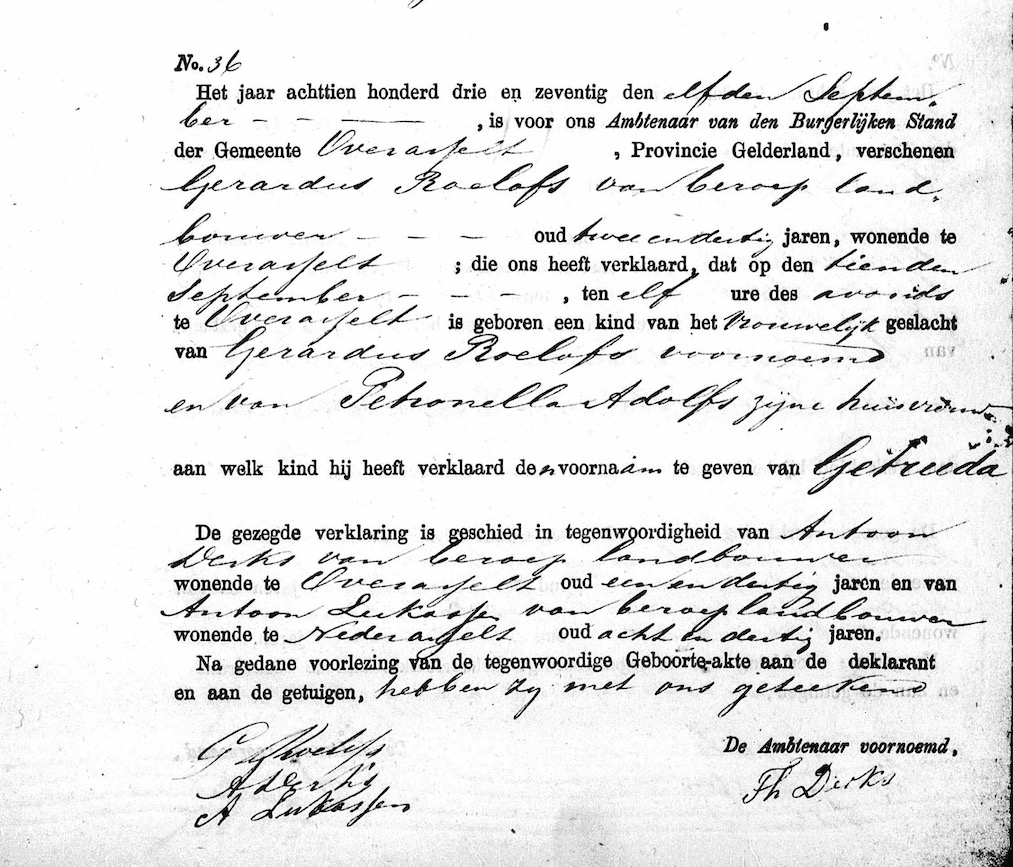 No. 36
Het jaar achttien honderd drie en zeventig den elfden Septem-
ber - - — , is voor ons Ambtenaar van den Burgerlijken Stand
der Gemeente Overasselt , Provincie Gelderland, verschenen
Gerardus Roelofs van beroep land-
bouwer - - - oud twee en dertig jaren, wonende te
Overasselt ; die ons heeft verklaard, dat op den tienden
September - - - , ten elf ure des avonds
te Overasselt is geboren een kind van het vrouwelijk geslacht
van Gerardus Roelofs voornoemd
en van Petronella Adolfs zijne huisvrouw
aan welk kind hij heeft verklaard den voornaam te geven van Getruda
De gezegde verklaring is geschied in tegenwoordigheid van Antoon
Derks van beroep landbouwer
wonende te Overasselt oud een en dertig jaren en van
Antoon Lukassen van beroep landbouwer
wonende te Nederasselt oud acht en dertig jaren.
Na gedane voorlezing van de tegenwoordige Geboorte-akte aan de deklarant
en aan de getuigen, hebben zy met ons geteekend
G Roelofs
De Ambtenaar voornoemd,
A Derks
Th Derks
A Lukassen